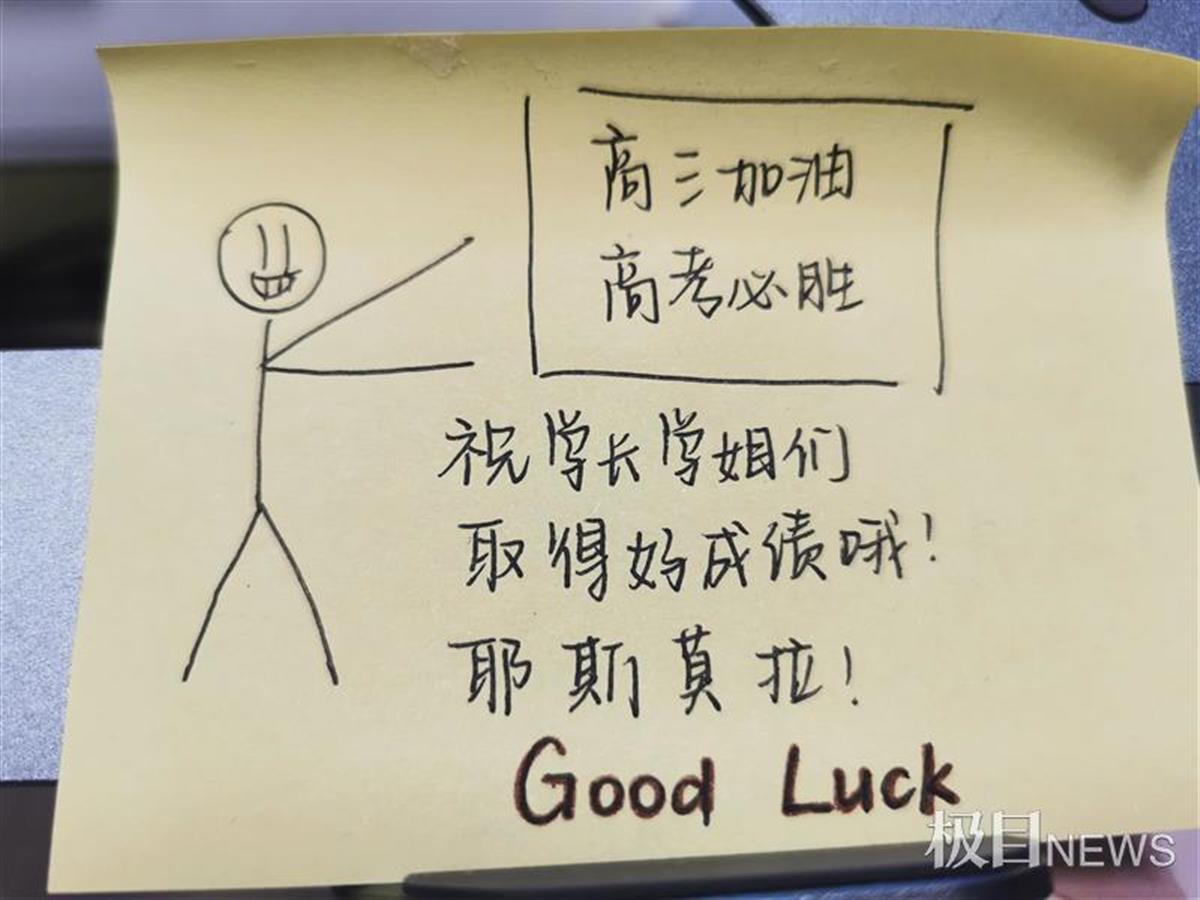 高三加油
高考必胜
祝学长学姐们
取得好成绩哦！
耶斯莫拉！
Good Luck
极目NEWS